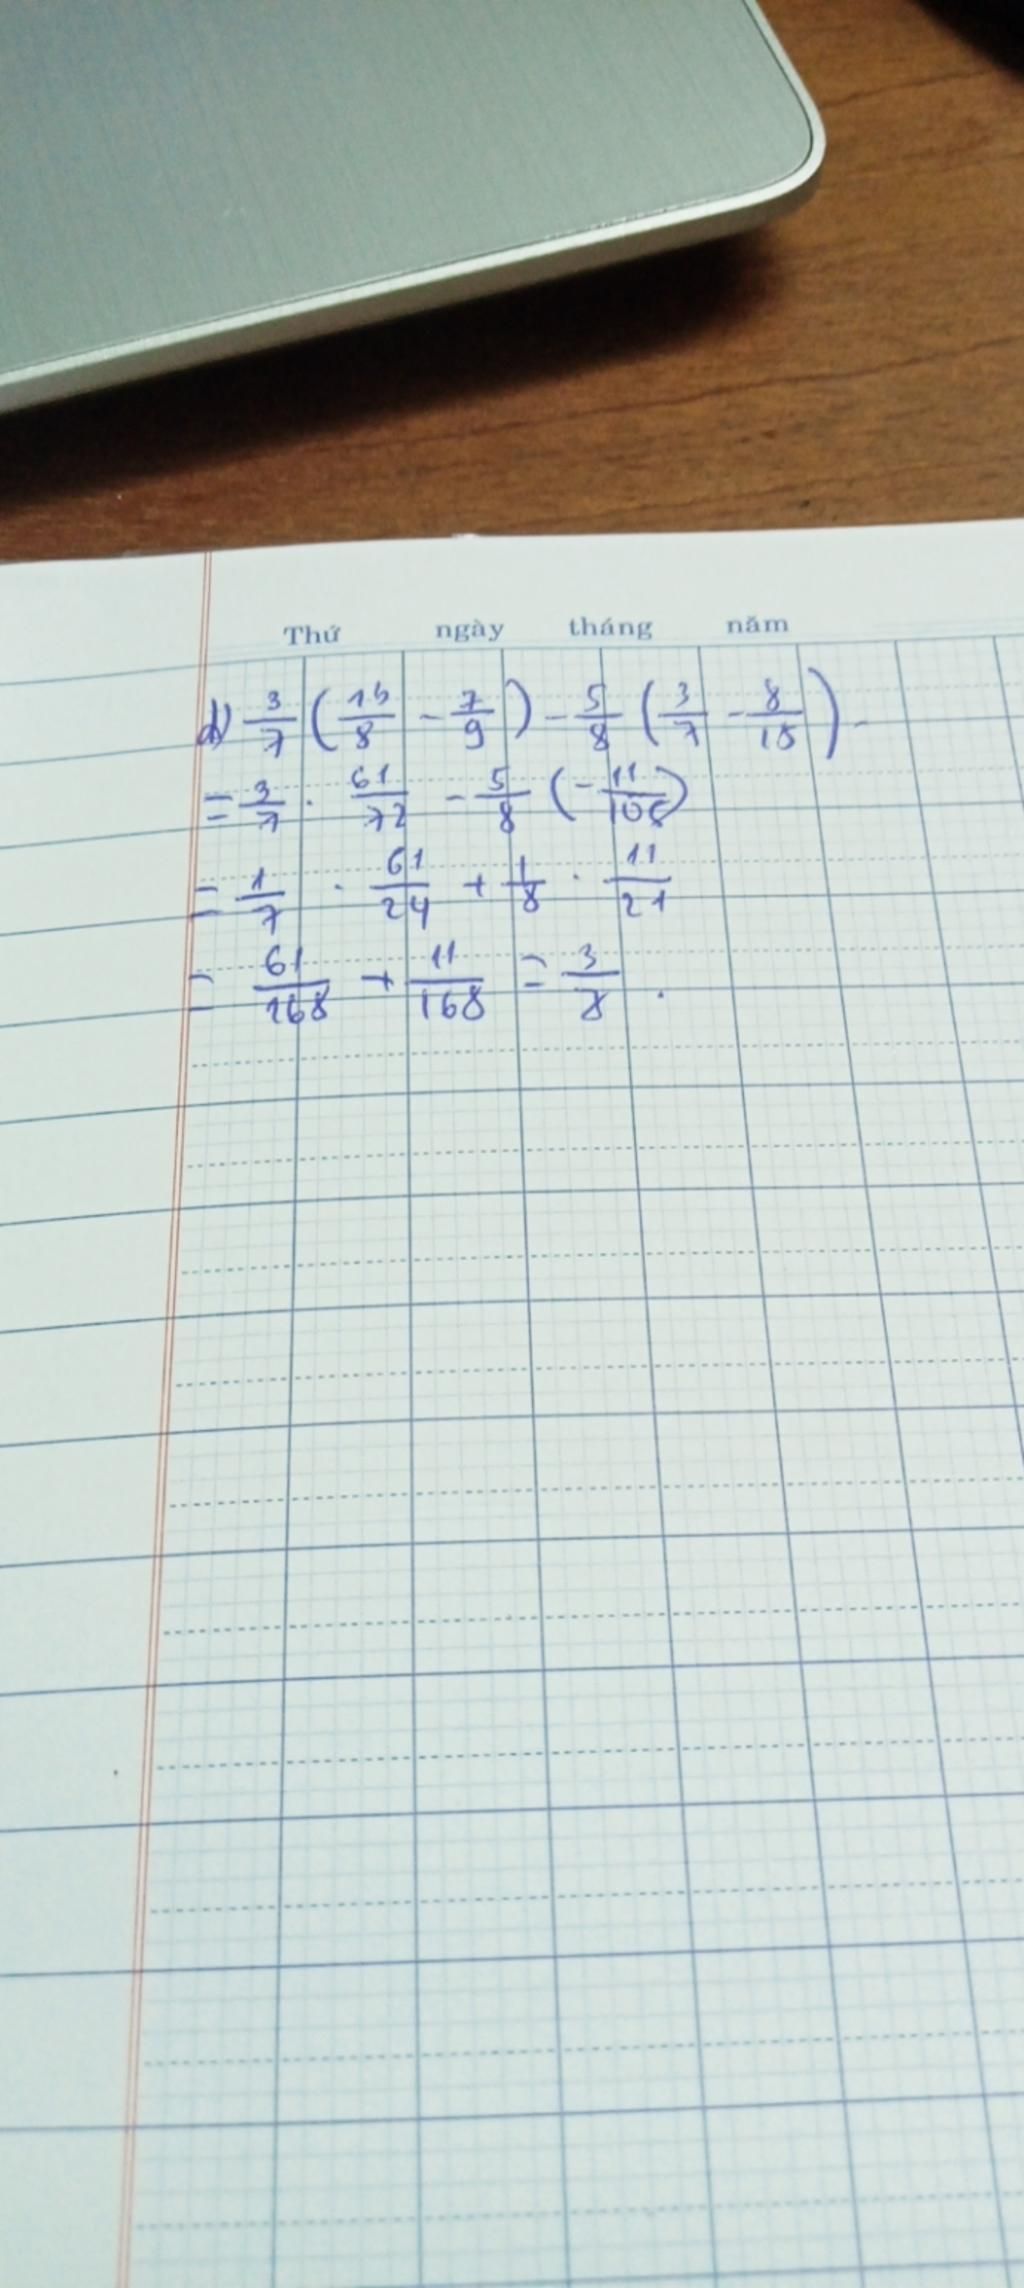 Thứ ngày tháng năm
d) 3/7 (13/8 - 7/9) - 5/8 (3/7 - 8/15)
= 3/7 . 61/72 - 5/8 (-11/105)
= 1/7 . 61/24 + 1/8 . 11/21
= 61/168 + 11/168 = 3/8 .